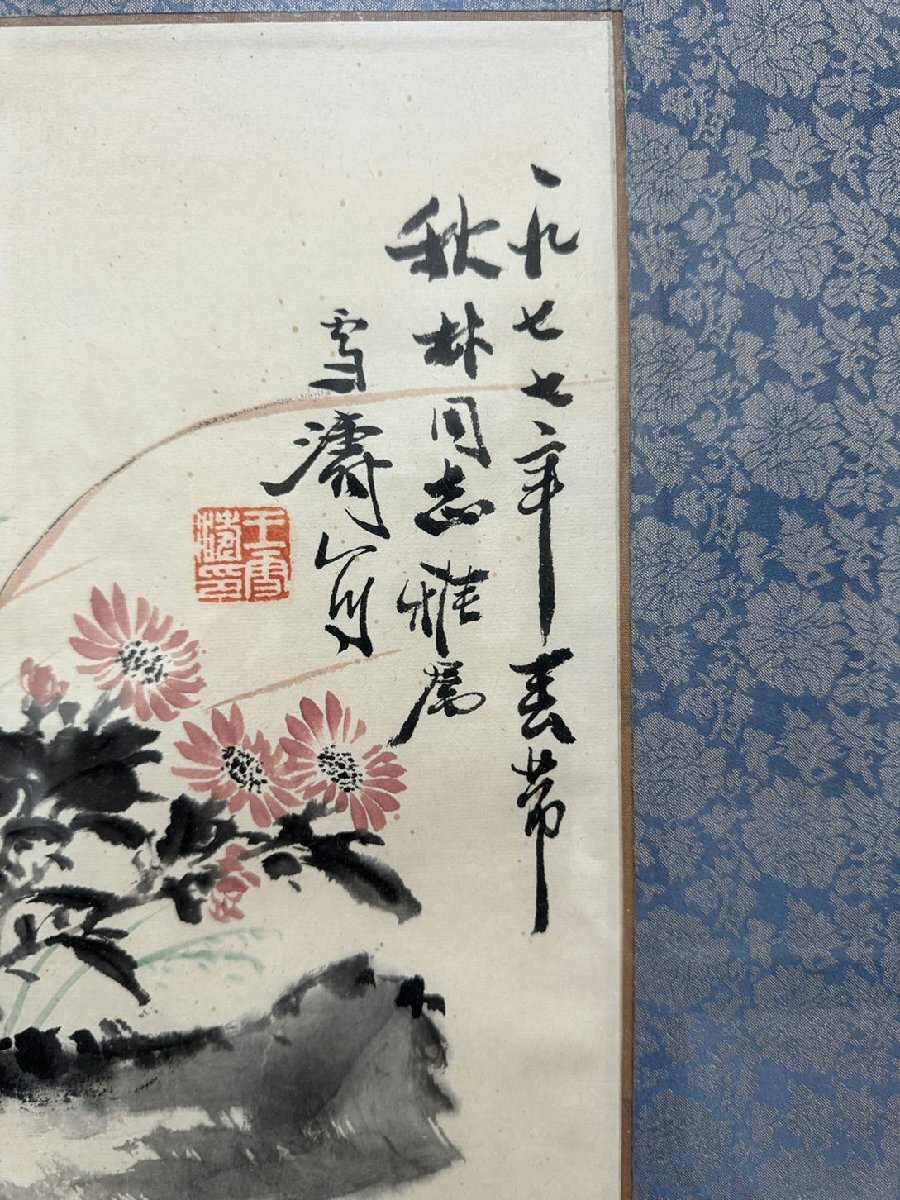 一九七七年春节
秋林同志雅属
雪濤写
王雪濤印